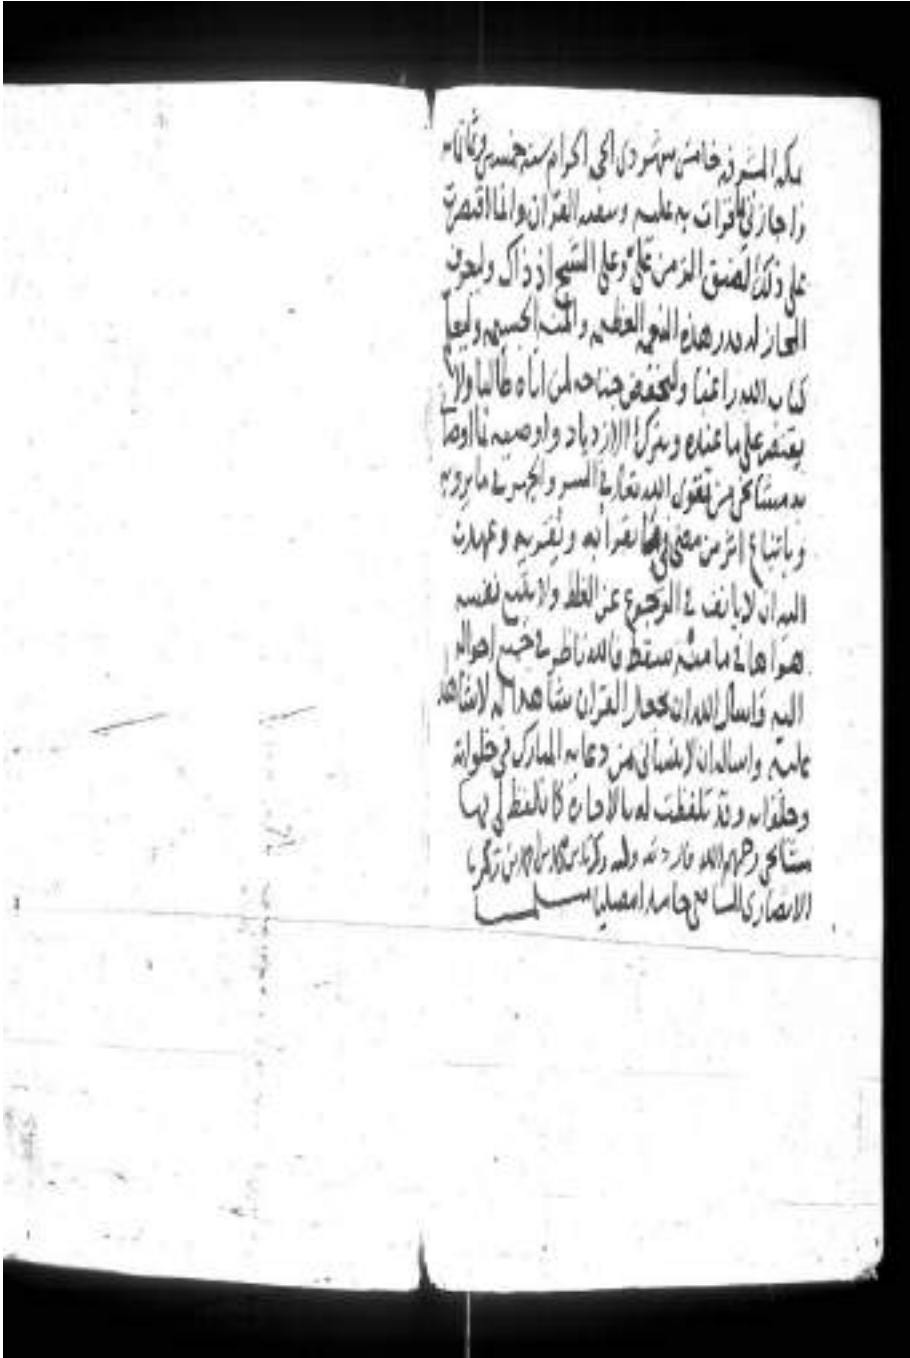 بمكة المشرفة خامس شهر ذي الحجة الحرام سنة خمسين وثمانمائة
واجازني بما قرات به عليه وسعه القران وانما اقتصرت
على ذلك لضيق الزمن علي وعلى الشيخ اذ ذاك وليعرف
المجاز له قدر هذه النعمة العظيمة والمنة الجسيمة وليعلم
كتاب الله راغبا وليخفض جناحه لمن اتاه طالبا ولا
يقتصر على ما عنده ويترك الازدياد واوصيه بما اوصا
به مشائخي من تقوى الله تعالى في السر والجهر في ما يرويه
وباتباع اثر من مضى فيما يقرا به ويقريه وعهدت
اليه ان لا يانف في الرجوع عن الغلط ولا يتبع نفسه
هواها في ما منه سقط فالله ناظر في جميع احواله
اليه واسال الله ان يجعل القران شاهدا له لا شاهدا
عليه واساله ان لا ينساني من دعايه المبارك في خلواته
وجلواته وقد تلفظت له بالاجازة كما تلفظ لي بها
مشائخي رحمهم الله زكريا بن محمد بن احمد بن زكريا
الانصاري الشافعي حامدا مصليا مسلما